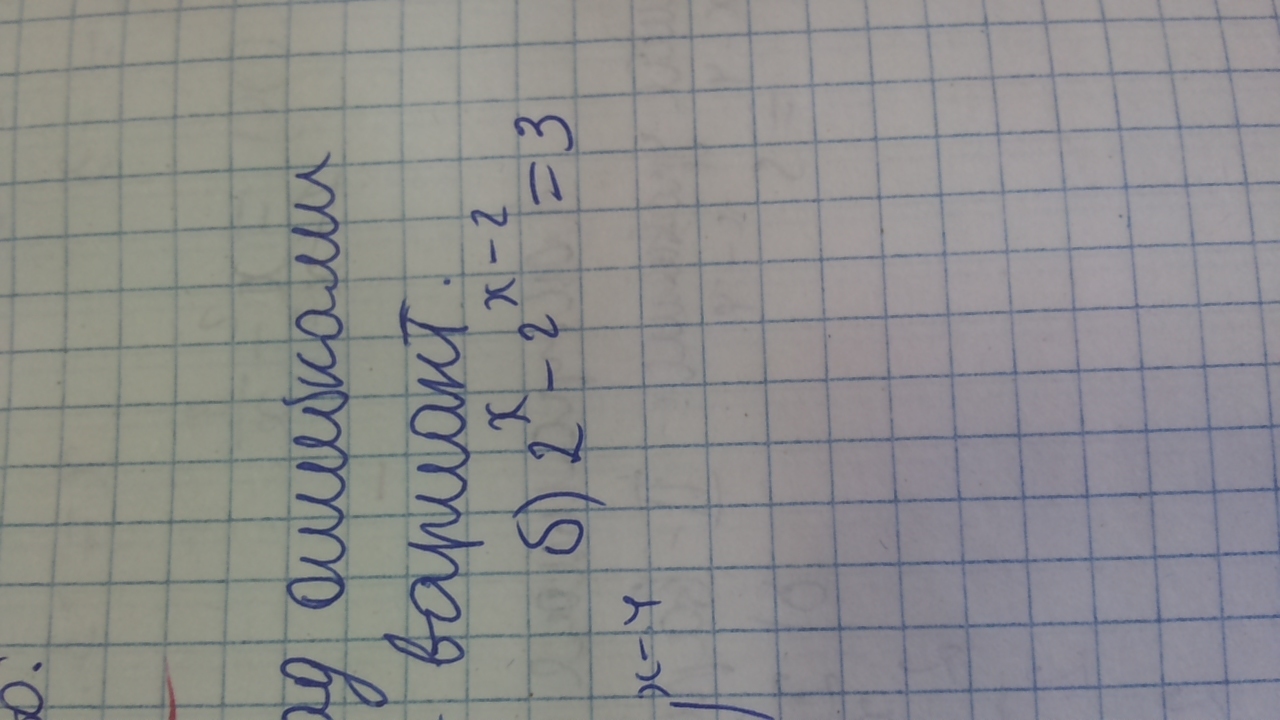 ад ошибками
вариант.
б) 2^x - 2^(x-2) = 3
x-4